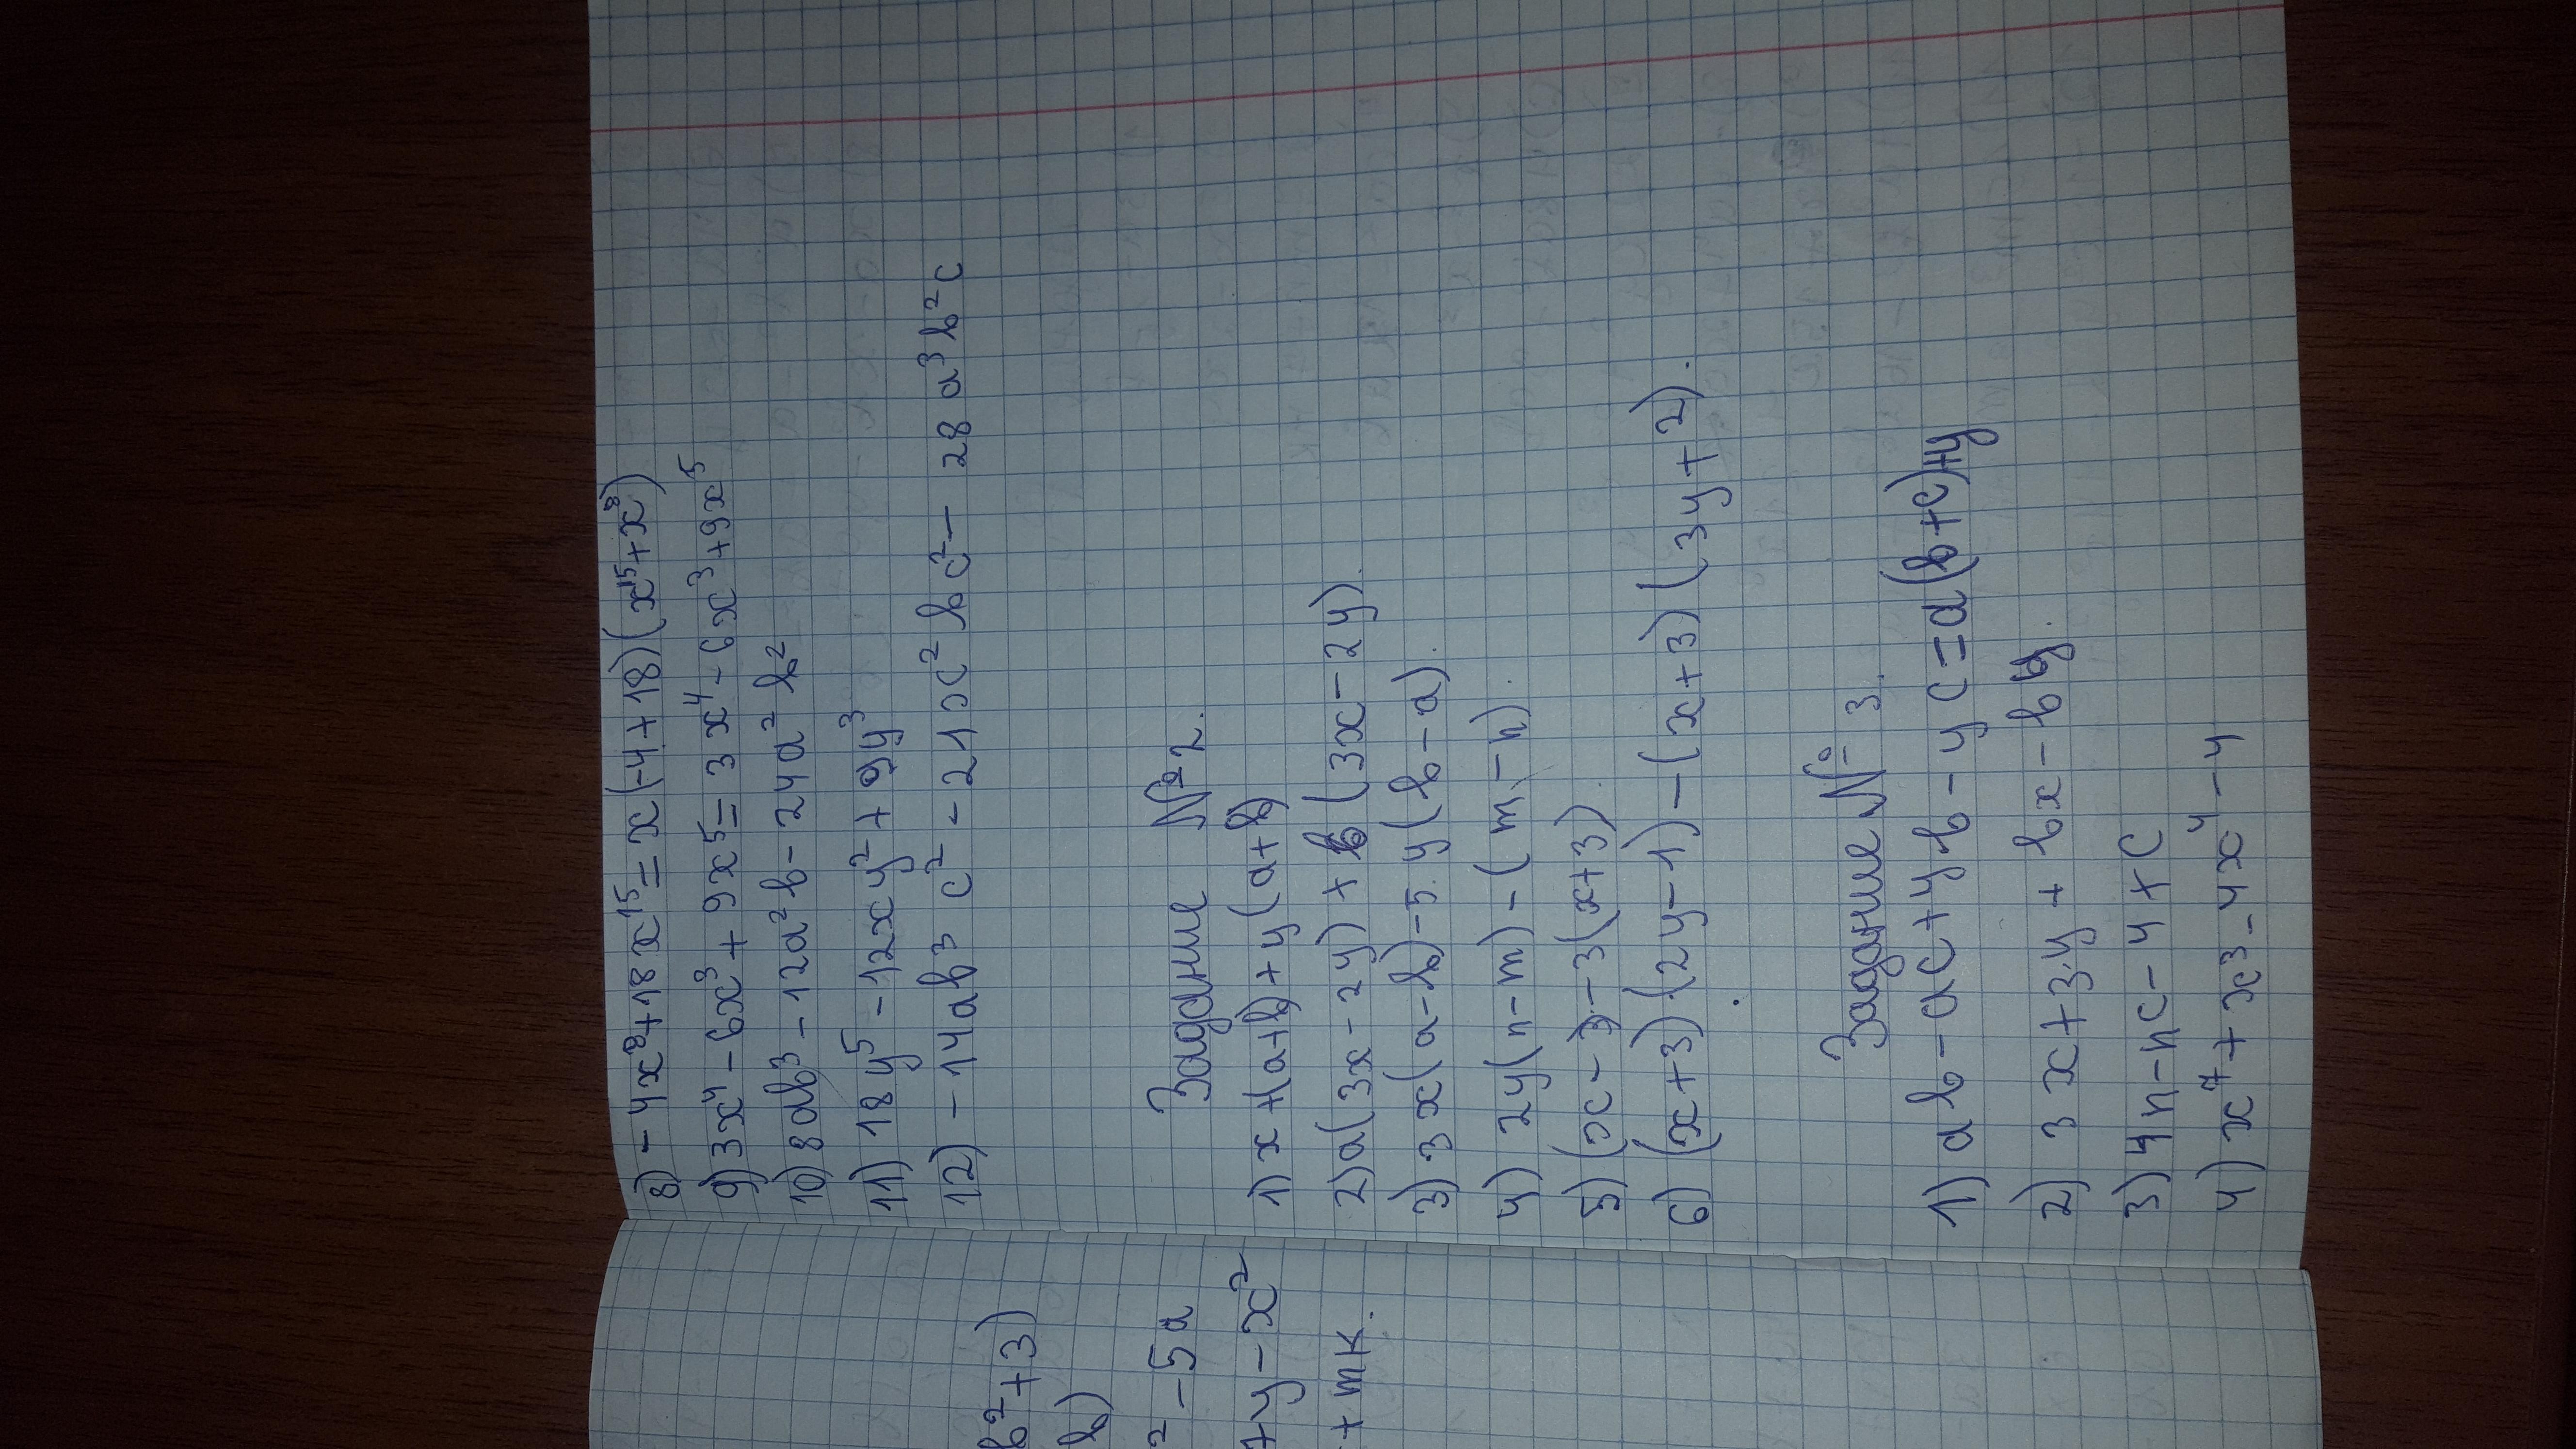 8) -4x⁸+18x¹⁵=x(-4+18)(x¹⁵+x⁸)
9) 3x⁴-6x³+9x⁵=3x⁴-6x³+9x⁵
10) 8ab³-12a²b-24a²b²
11) 18y⁵-12xy²+9y³
12) -14ab³c²-21a²bc²-28a³b²c
Задание №2.
1) x+(a+b)+y(a+b)
2) a(3x-2y)+b(3x-2y).
3) 3x(a-b)-5y(b-a).
4) 2y(n-m)-(m-n).
5) (x-3)-3(x+3).
6) (x+3)(2y-1)-(x+3)(3y+2).
Задание №3.
1) ab-ac+yb-yc=a(b+c)+y
2) 3x+3y+bx-by.
3) 4n-nc-4+c
4) x⁷+x³-4x⁴-4
b²+3)
b)
²-5a
+y-x²
+mk.